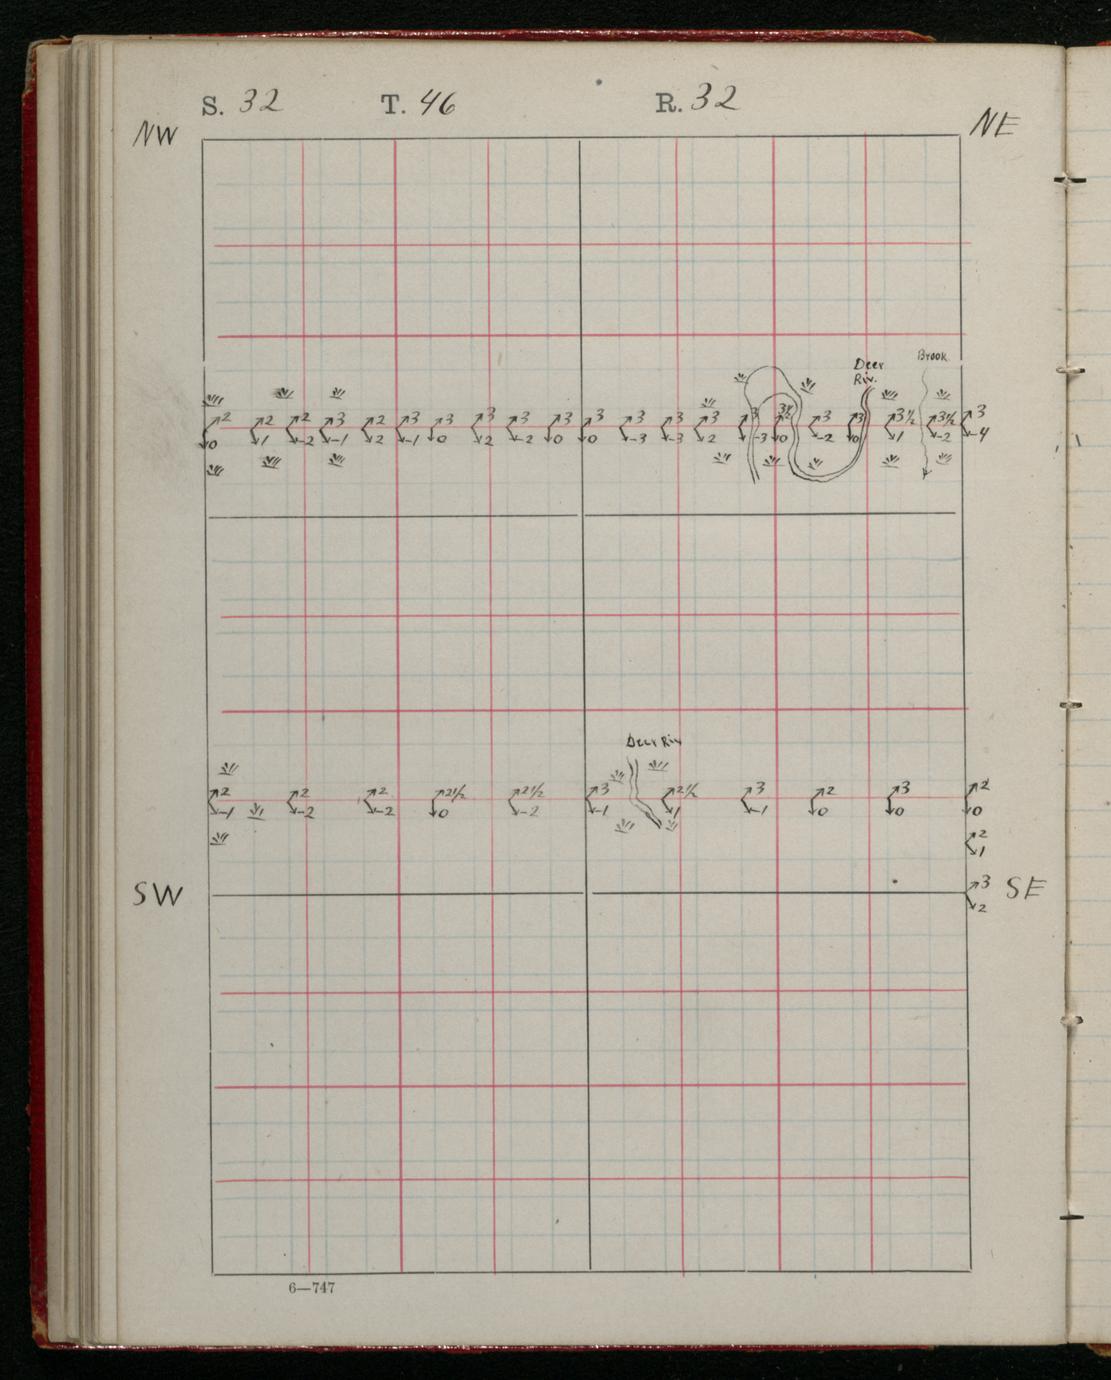 S. 32 T. 46 R. 32
NW NE
Deer Riv. Brook
2 2 2 3 2 3 3 3 3 3 3 3 3 3 3 3½ 3 3 3½ 3½ 3
0 1 -2 -1 2 -1 0 2 -2 0 0 -3 -3 2 -3 0 -2 0 1 -2 -4
Deer Riv
2 2 2 2½ 2½ 3 2½ 3 2 3 2
-1 -2 -2 0 -2 -1 1 -1 0 0 0
2
1
SW 3 SE
2
6—747